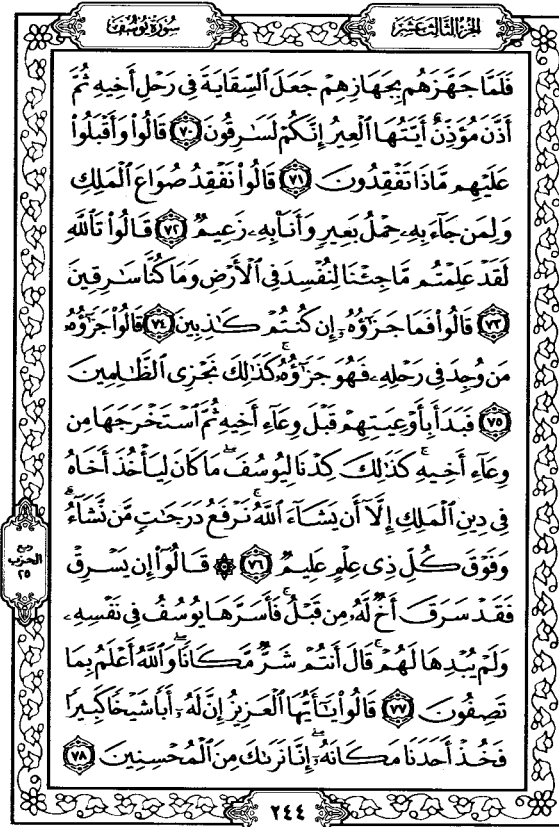 سُورَةُ يُوسُفَ
الجُزْءُ الثَّالِثَ عَشَرَ
فَلَمَّا جَهَّزَهُم بِجَهَازِهِمْ جَعَلَ ٱلسِّقَايَةَ فِى رَحْلِ أَخِيهِ ثُمَّ
أَذَّنَ مُؤَذِّنٌ أَيَّتُهَا ٱلْعِيرُ إِنَّكُمْ لَسَٰرِقُونَ ٧٠ قَالُوا۟ وَأَقْبَلُوا۟
عَلَيْهِم مَّاذَا تَفْقِدُونَ ٧١ قَالُوا۟ نَفْقِدُ صُوَاعَ ٱلْمَلِكِ
وَلِمَن جَآءَ بِهِۦ حِمْلُ بَعِيرٍ وَأَنَا۠ بِهِۦ زَعِيمٌ ٧٢ قَالُوا۟ تَٱللَّهِ
لَقَدْ عَلِمْتُم مَّا جِئْنَا لِنُفْسِدَ فِى ٱلْأَرْضِ وَمَا كُنَّا سَٰرِقِينَ
٧٣ قَالُوا۟ فَمَا جَزَٰٓؤُهُۥٓ إِن كُنتُمْ كَٰذِبِينَ ٧٤ قَالُوا۟ جَزَٰٓؤُهُۥ
مَن وُجِدَ فِى رَحْلِهِۦ فَهُوَ جَزَٰٓؤُهُۥ ۚ كَذَٰلِكَ نَجْزِى ٱلظَّٰلِمِينَ
٧٥ فَبَدَأَ بِأَوْعِيَتِهِمْ قَبْلَ وِعَآءِ أَخِيهِ ثُمَّ ٱسْتَخْرَجَهَا مِن
وِعَآءِ أَخِيهِ ۚ كَذَٰلِكَ كِدْنَا لِيُوسُفَ ۖ مَا كَانَ لِيَأْخُذَ أَخَاهُ
فِى دِينِ ٱلْمَلِكِ إِلَّآ أَن يَشَآءَ ٱللَّهُ ۚ نَرْفَعُ دَرَجَٰتٍ مَّن نَّشَآءُ ۗ
وَفَوْقَ كُلِّ ذِى عِلْمٍ عَلِيمٌ ٧٦ ۞ قَالُوٓا۟ إِن يَسْرِقْ
فَقَدْ سَرَقَ أَخٌ لَّهُۥ مِن قَبْلُ ۚ فَأَسَرَّهَا يُوسُفُ فِى نَفْسِهِۦ
وَلَمْ يُبْدِهَا لَهُمْ ۚ قَالَ أَنتُمْ شَرٌّ مَّكَانًا ۖ وَٱللَّهُ أَعْلَمُ بِمَا
تَصِفُونَ ٧٧ قَالُوا۟ يَٰٓأَيُّهَا ٱلْعَزِيزُ إِنَّ لَهُۥٓ أَبًا شَيْخًا كَبِيرًا
فَخُذْ أَحَدَنَا مَكَانَهُۥٓ ۖ إِنَّا نَرَىٰكَ مِنَ ٱلْمُحْسِنِينَ ٧٨
ربع
الحزب
٢٥
٢٤٤